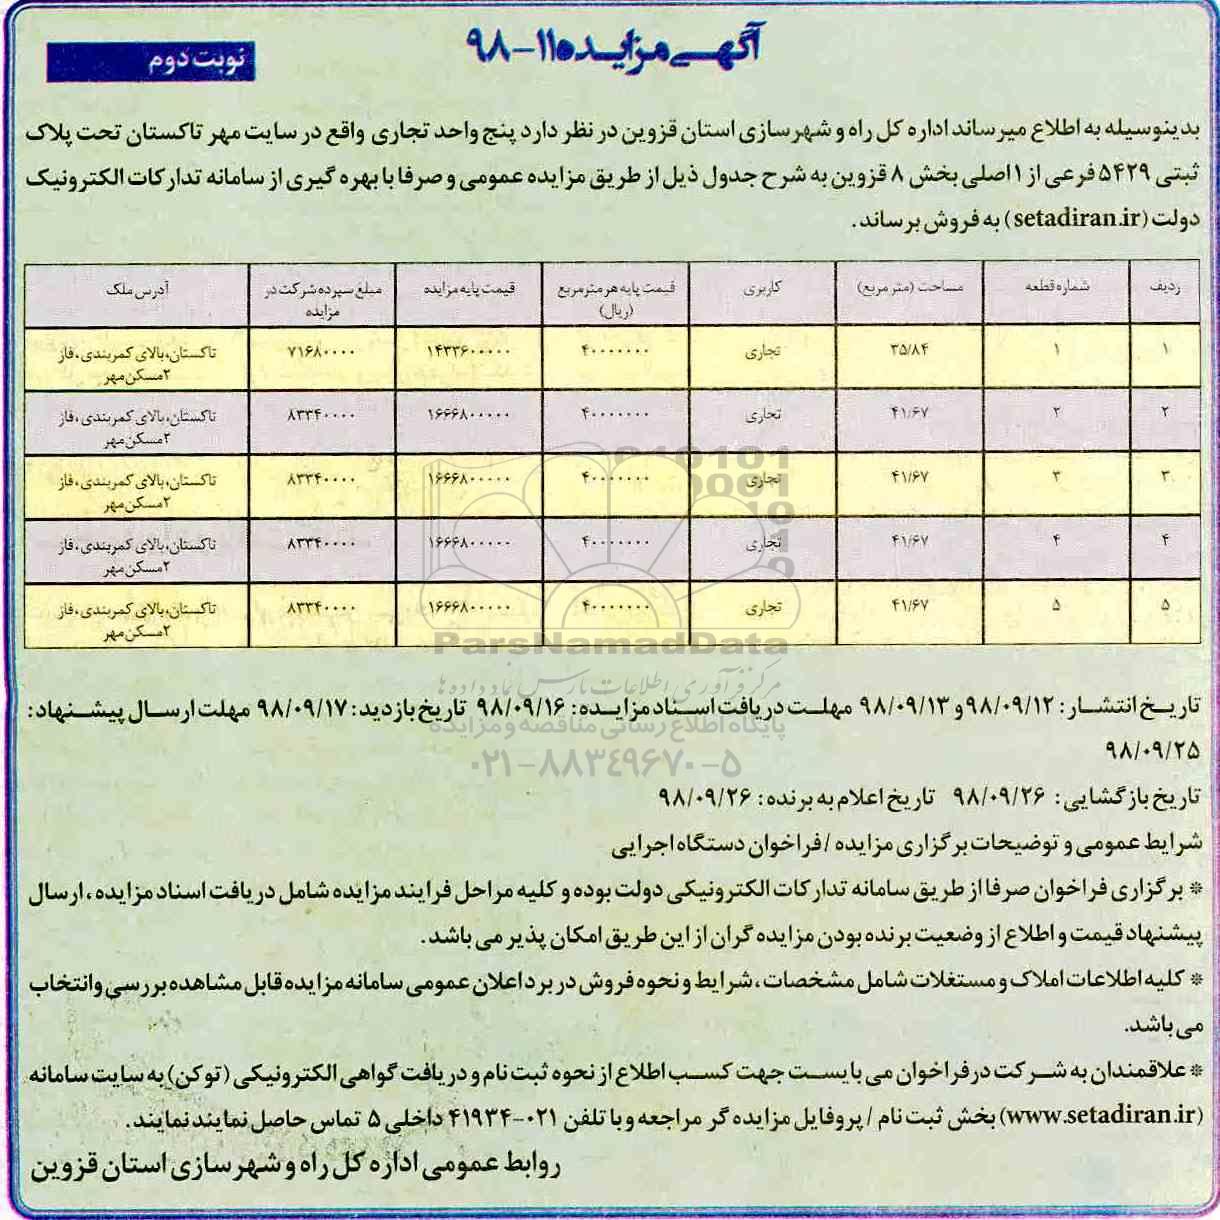 آگهی مزایده ۱۱-۹۸
نوبت دوم
بدینوسیله به اطلاع میرساند اداره کل راه و شهرسازی استان قزوین در نظر دارد پنج واحد تجاری واقع در سایت مهر تاکستان تحت پلاک
ثبتی ۵۴۲۹ فرعی از ۱ اصلی بخش ۸ قزوین به شرح جدول ذیل از طریق مزایده عمومی و صرفا با بهره گیری از سامانه تدارکات الکترونیک
دولت (setadiran.ir) به فروش برساند.
ردیف شماره قطعه مساحت (متر مربع) کاربری قیمت پایه هر مترمربع (ریال) قیمت پایه مزایده مبلغ سپرده شرکت در مزایده آدرس ملک
۱ ۱ ۳۵/۸۴ تجاری ۴۰۰۰۰۰۰۰ ۱۴۳۳۶۰۰۰۰۰ ۷۱۶۸۰۰۰۰ تاکستان، بالای کمربندی، فاز ۲مسکن مهر
۲ ۲ ۴۱/۶۷ تجاری ۴۰۰۰۰۰۰۰ ۱۶۶۶۸۰۰۰۰۰ ۸۳۳۴۰۰۰۰ تاکستان، بالای کمربندی، فاز ۲مسکن مهر
۳ ۳ ۴۱/۶۷ تجاری ۴۰۰۰۰۰۰۰ ۱۶۶۶۸۰۰۰۰۰ ۸۳۳۴۰۰۰۰ تاکستان، بالای کمربندی، فاز ۲مسکن مهر
۴ ۴ ۴۱/۶۷ تجاری ۴۰۰۰۰۰۰۰ ۱۶۶۶۸۰۰۰۰۰ ۸۳۳۴۰۰۰۰ تاکستان، بالای کمربندی، فاز ۲مسکن مهر
۵ ۵ ۴۱/۶۷ تجاری ۴۰۰۰۰۰۰۰ ۱۶۶۶۸۰۰۰۰۰ ۸۳۳۴۰۰۰۰ تاکستان، بالای کمربندی، فاز ۲مسکن مهر
ParsNamadData
مرکز فرآوری اطلاعات پارس نماد داده ها
پایگاه اطلاع رسانی مناقصه و مزایده
۰۲۱-۸۸۳۴۹۶۷۰-۵
تاریخ انتشار: ۹۸/۰۹/۱۲ و ۹۸/۰۹/۱۳ مهلت دریافت اسناد مزایده: ۹۸/۰۹/۱۶ تاریخ بازدید: ۹۸/۰۹/۱۷ مهلت ارسال پیشنهاد:
۹۸/۰۹/۲۵
تاریخ بازگشایی: ۹۸/۰۹/۲۶ تاریخ اعلام به برنده: ۹۸/۰۹/۲۶
شرایط عمومی و توضیحات برگزاری مزایده /فراخوان دستگاه اجرایی
* برگزاری فراخوان صرفا از طریق سامانه تدارکات الکترونیکی دولت بوده و کلیه مراحل فرایند مزایده شامل دریافت اسناد مزایده، ارسال
پیشنهاد قیمت و اطلاع از وضعیت برنده بودن مزایده گران از این طریق امکان پذیر می باشد.
* کلیه اطلاعات املاک و مستغلات شامل مشخصات، شرایط و نحوه فروش در برد اعلان عمومی سامانه مزایده قابل مشاهده بررسی وانتخاب
می باشد.
* علاقمندان به شرکت در فراخوان می بایست جهت کسب اطلاع از نحوه ثبت نام و دریافت گواهی الکترونیکی (توکن) به سایت سامانه
(www.setadiran.ir) بخش ثبت نام / پروفایل مزایده گر مراجعه و با تلفن ۰۲۱-۴۱۹۳۴ داخلی ۵ تماس حاصل نمایند نمایند.
روابط عمومی اداره کل راه و شهرسازی استان قزوین